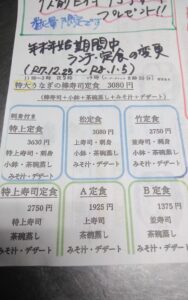 数量限定です
年末年始期間中
ランチ・定食の変更
(R7.12.23 〜 R8.1.5)
特大うなぎの棒寿司定食 3080円
(棒寿司+小鉢+茶碗蒸し+みそ汁+デザート)
刺身付き
特上定食
3630円
特上寿司
小鉢・茶碗蒸し
みそ汁・デザート
松定食
3080円
上寿司・刺身
小鉢・茶碗蒸し
みそ汁・デザート
竹定食
2750円
並寿司・刺身
小鉢・茶碗蒸し
みそ汁・デザート
特上寿司定食
2750円
特上寿司
茶碗蒸し
みそ汁・デザート
A定食
1925円
上寿司
茶碗蒸し
みそ汁・デザート
B定食
1375円
並寿司
茶碗蒸し
みそ汁・デザート